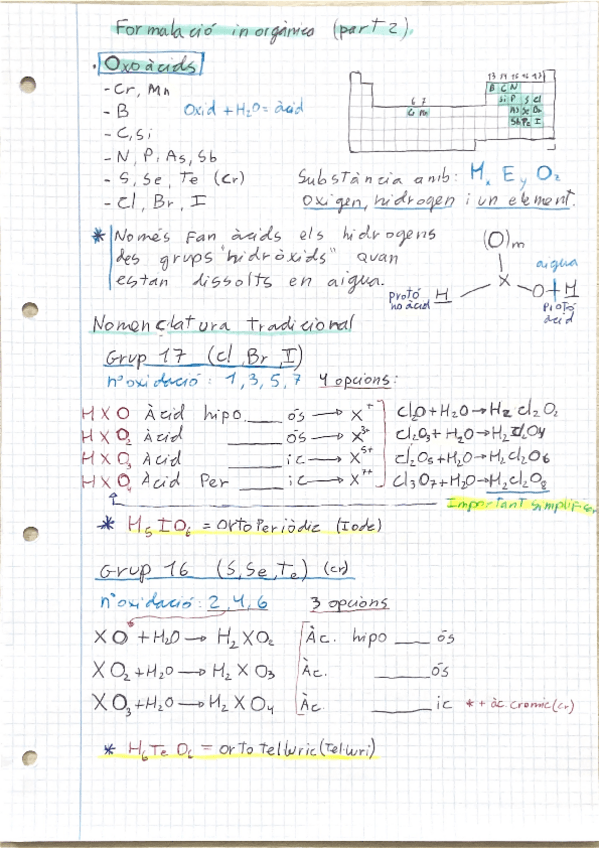 Formulació inorgànica (part 2).
• Oxoàcids
- Cr, Mn
- B
Oxid + H₂O = àcid
- C, Si
- N, P, As, Sb
- S, Se, Te (Cr)
- Cl, Br, I
13 14 15 16 17
B C N
Si P S Cl
As Se Br
Sb Te I
6 7
Cr Mn
Substància amb: Hₓ Eᵧ O₂
Oxigen, hidrogen i un element.
* Només fan àcids els hidrogens
des grups "hidròxids" quan
estan dissolts en aigua.
(O)m
X
aigua
O H
H
protó no àcid
Protó àcid
Nomenclatura tradicional
Grup 17 (Cl, Br, I)
nº oxidació: 1, 3, 5, 7 4 opcions:
HXO Àcid hipo ____ ós → X⁺ Cl₂O + H₂O → H₂Cl₂O₂
HXO₂ Àcid ____ ós → X³⁺ Cl₂O₃ + H₂O → H₂Cl₂O₄
HXO₃ Àcid ____ ic → X⁵⁺ Cl₂O₅ + H₂O → H₂Cl₂O₆
HXO₄ Àcid Per ____ ic → X⁷⁺ Cl₃O₇ + H₂O → H₂Cl₂O₈
Important simplificar
* H₅IO₆ = ortoperiòdic (Iode)
Grup 16 (S, Se, Te) (Cr)
nº oxidació: 2, 4, 6 3 opcions
XO + H₂O → H₂XO₂ Àc. hipo ____ ós
XO₂ + H₂O → H₂XO₃ Àc. ____ ós
XO₃ + H₂O → H₂XO₄ Àc. ____ ic * + àc cromic (cr)
* H₆TeO₆ = orto telluric (Tel·luri)